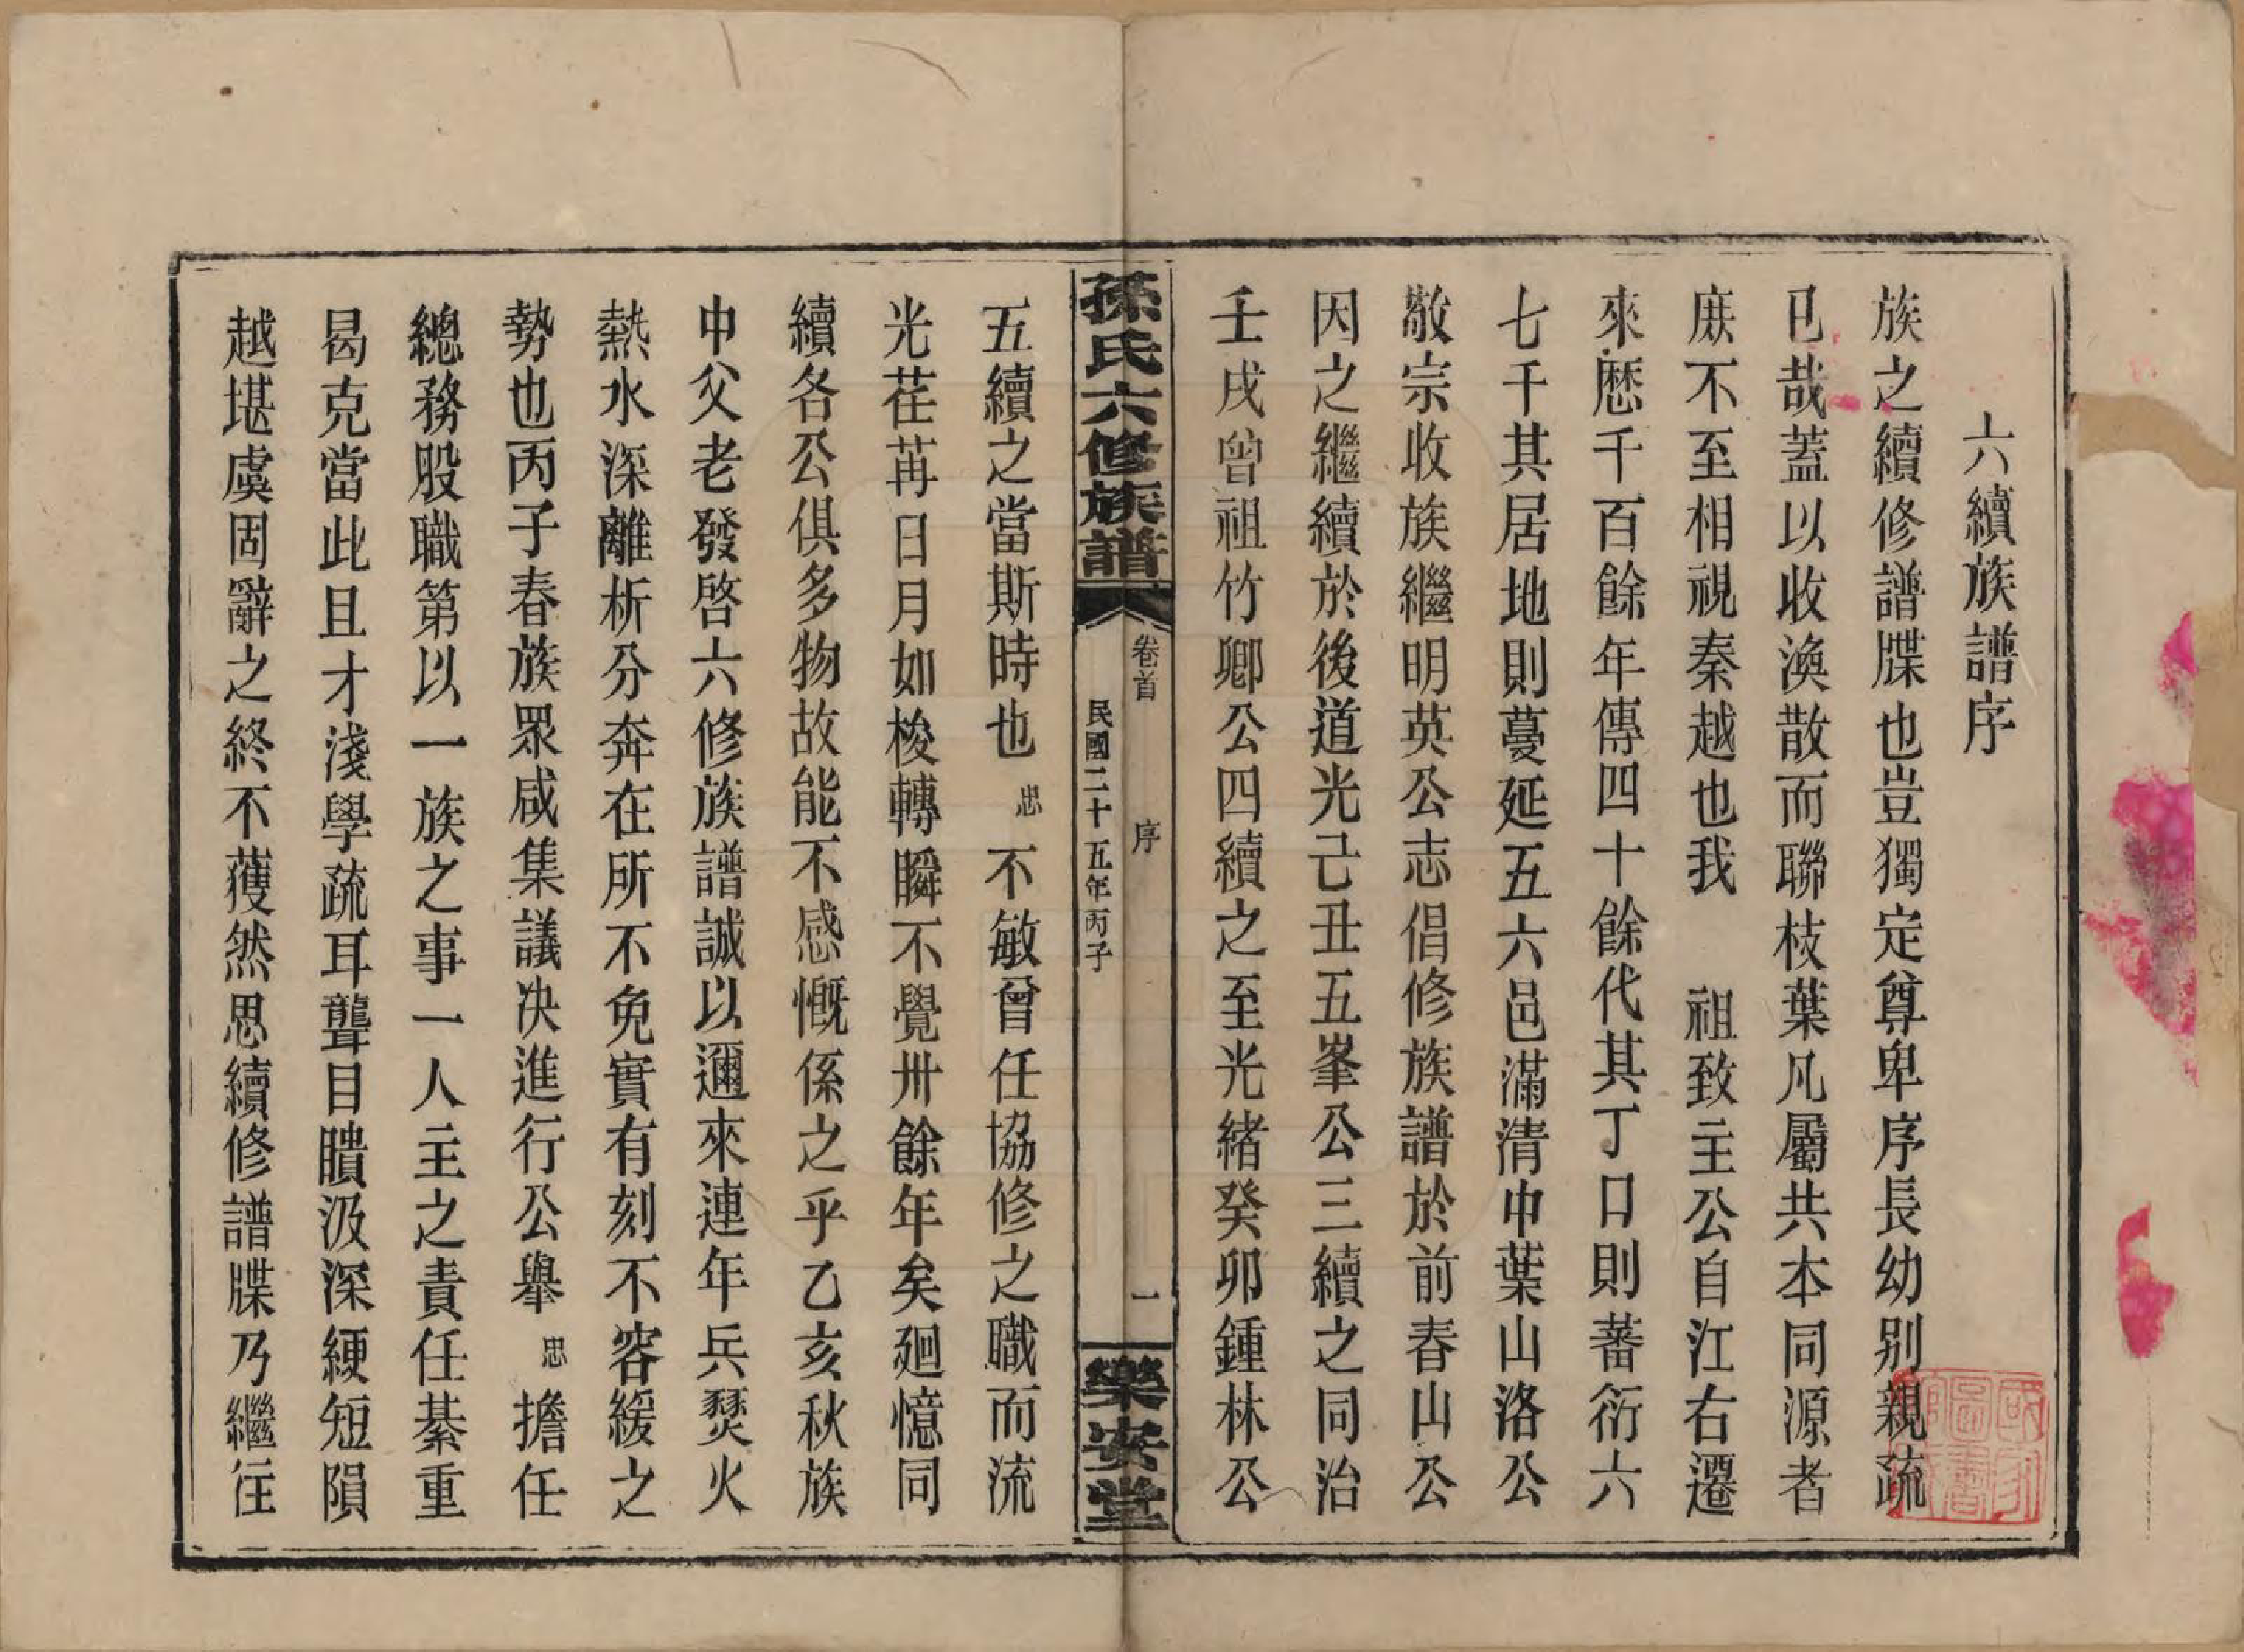 六續族譜序
族之續修譜牒也豈獨定尊卑序長幼別親疏
已哉蓋以收渙散而聯枝葉凡屬共本同源者
庶不至相視秦越也我　祖致主公自江右遷
來歷千百餘年傳四十餘代其丁口則蕃衍六
七千其居地則蔓延五六邑滿清中葉山洛公
敬宗收族繼明英公志倡修族譜於前春山公
因之繼續於後道光己丑五峯公三續之同治
壬戌曾祖竹鄉公四續之至光緒癸卯鍾林公
孫氏六修族譜
卷首　序　一
民國二十五年丙子
樂安堂
五續之當斯時也忠不敏曾任協修之職而流
光荏苒日月如梭轉瞬不覺卅餘年矣廻憶同
續各公俱多物故能不感慨係之乎乙亥秋族
中父老發啓六修族譜誠以邇來連年兵燹火
熱水深離析分奔在所不免實有刻不容緩之
勢也丙子春族眾咸集議決進行公舉忠擔任
總務股職第以一族之事一人主之責任綦重
曷克當此且才淺學疏耳聾目瞶汲深綆短隕
越堪虞固辭之終不獲然思續修譜牒乃繼往